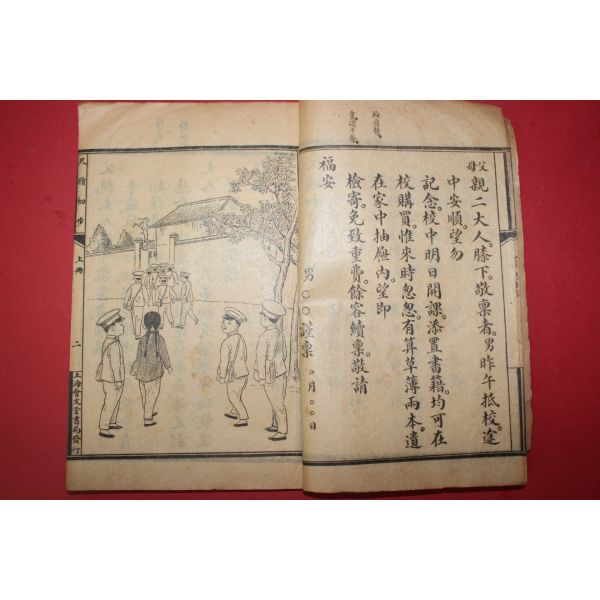 父母親二大人。膝下。敬禀者。男昨午抵校。途
中安順。望勿
記念。校中明日開課。添置書籍。均可在
校購買。惟來時忽忽。有算草簿兩本。遺
在家中抽屜內。望即
檢寄。免致重費。餘容續禀。敬請
福安
男○○謹禀 ○月○○日
尺牘初步 上冊 二 上海會文堂書局發行